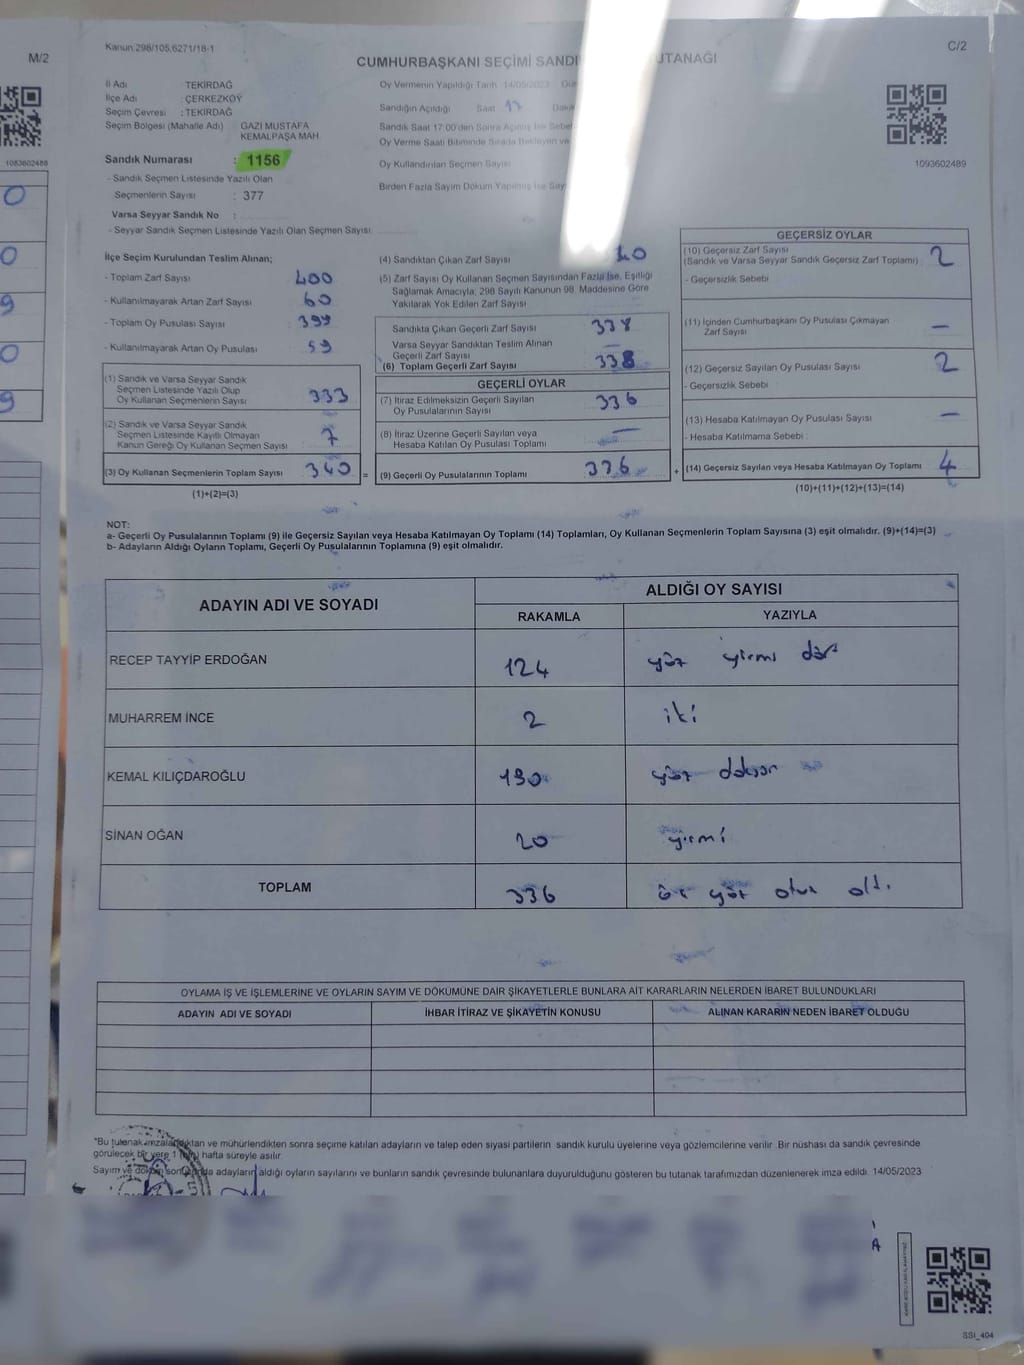 M/2
1083602488
0
0
9
0
9
Kanun:298/105,6271/18-1
C/2
CUMHURBAŞKANI SEÇİMİ SANDI UTANAĞI
İl Adı TEKİRDAĞ
İlçe Adı : ÇERKEZKÖY
Seçim Çevresi : TEKİRDAĞ
Seçim Bölgesi (Mahalle Adı) GAZİ MUSTAFA
KEMALPAŞA MAH.
Sandık Numarası : 1156
- Sandık Seçmen Listesinde Yazılı Olan
Seçmenlerin Sayısı : 377
Varsa Seyyar Sandık No :
- Seyyar Sandık Seçmen Listesinde Yazılı Olan Seçmen Sayısı:
Oy Vermenin Yapıldığı Tarih 14/05/2023
Sandığın Açıldığı Saat 17
Sandık Saat 17:00'den Sonra Açılmış İse Sebebi
Oy Verme Saati Bitiminde Sırada Bekleyen ve
Oy Kullandırılan Seçmen Sayısı
Birden Fazla Sayım Döküm Yapılmış İse Say
1093602489
İlçe Seçim Kurulundan Teslim Alınan;
- Toplam Zarf Sayısı 400
- Kullanılmayarak Artan Zarf Sayısı 60
- Toplam Oy Pusulası Sayısı 399
- Kullanılmayarak Artan Oy Pusulası 59
(1) Sandık ve Varsa Seyyar Sandık
Seçmen Listesinde Yazılı Olup
Oy Kullanan Seçmenlerin Sayısı 333
(2) Sandık ve Varsa Seyyar Sandık
Seçmen Listesinde Kayıtlı Olmayan
Kanun Gereği Oy Kullanan Seçmen Sayısı 7
(3) Oy Kullanan Seçmenlerin Toplam Sayısı 340 =
(1)+(2)=(3)
(4) Sandıktan Çıkan Zarf Sayısı 40
(5) Zarf Sayısı Oy Kullanan Seçmen Sayısından Fazla İse, Eşitliği
Sağlamak Amacıyla; 298 Sayılı Kanunun 98. Maddesine Göre
Yakılarak Yok Edilen Zarf Sayısı
Sandıkta Çıkan Geçerli Zarf Sayısı 338
Varsa Seyyar Sandıktan Teslim Alınan
Geçerli Zarf Sayısı —
(6) Toplam Geçerli Zarf Sayısı 338
GEÇERLİ OYLAR
(7) İtiraz Edilmeksizin Geçerli Sayılan
Oy Pusulalarının Sayısı 336
(8) İtiraz Üzerine Geçerli Sayılan veya
Hesaba Katılan Oy Pusulası Toplamı —
(9) Geçerli Oy Pusulalarının Toplamı 336 +
GEÇERSİZ OYLAR
(10) Geçersiz Zarf Sayısı
(Sandık ve Varsa Seyyar Sandık Geçersiz Zarf Toplamı) 2
- Geçersizlik Sebebi
(11) İçinden Cumhurbaşkanı Oy Pusulası Çıkmayan
Zarf Sayısı —
(12) Geçersiz Sayılan Oy Pusulası Sayısı 2
- Geçersizlik Sebebi
(13) Hesaba Katılmayan Oy Pusulası Sayısı —
- Hesaba Katılmama Sebebi :
(14) Geçersiz Sayılan veya Hesaba Katılmayan Oy Toplamı 4
(10)+(11)+(12)+(13)=(14)
NOT:
a- Geçerli Oy Pusulalarının Toplamı (9) ile Geçersiz Sayılan veya Hesaba Katılmayan Oy Toplamı (14) Toplamları, Oy Kullanan Seçmenlerin Toplam Sayısına (3) eşit olmalıdır. (9)+(14)=(3)
b- Adayların Aldığı Oyların Toplamı, Geçerli Oy Pusulalarının Toplamına (9) eşit olmalıdır.
ADAYIN ADI VE SOYADI
ALDIĞI OY SAYISI
RAKAMLA YAZIYLA
RECEP TAYYİP ERDOĞAN 124 yüz yirmi dört
MUHARREM İNCE 2 iki
KEMAL KILIÇDAROĞLU 190 yüz doksan
SİNAN OĞAN 20 yirmi
TOPLAM 336 üç yüz otuz altı
OYLAMA İŞ VE İŞLEMLERİNE VE OYLARIN SAYIM VE DÖKÜMÜNE DAİR ŞİKAYETLERLE BUNLARA AİT KARARLARIN NELERDEN İBARET BULUNDUKLARI
ADAYIN ADI VE SOYADI İHBAR İTİRAZ VE ŞİKAYETİN KONUSU ALINAN KARARIN NEDEN İBARET OLDUĞU
*Bu tutanak imzalandıktan ve mühürlendikten sonra seçime katılan adayların ve talep eden siyasi partilerin sandık kurulu üyelerine veya gözlemcilerine verilir. Bir nüshası da sandık çevresinde
görülecek bir yere 1 hafta süreyle asılır.
Sayım ve döküm sonunda adayların aldığı oyların sayılarını ve bunların sandık çevresinde bulunanlara duyurulduğunu gösteren bu tutanak tarafımızdan düzenlenerek imza edildi. 14/05/2023
A
SSI_404